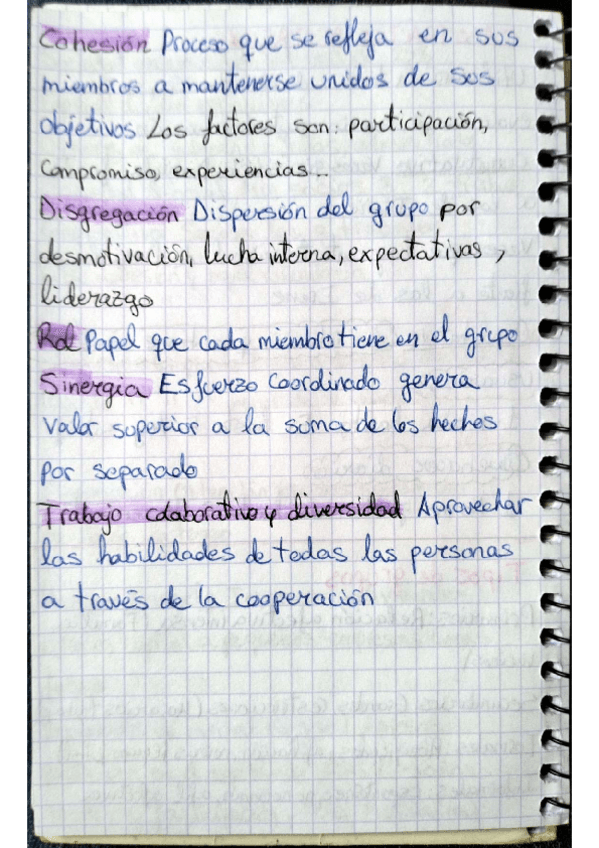 Cohesión Proceso que se refleja en sus
miembros a mantenerse unidos de sus
objetivos Los factores son: participación,
compromiso, experiencias...
Disgregación Dispersión del grupo por
desmotivación, lucha interna, expectativas,
liderazgo
Rol Papel que cada miembro tiene en el grupo
Sinergia Esfuerzo coordinado genera
valor superior a la suma de los hechos
por separado
Trabajo colaborativo y diversidad Aprovechar
las habilidades de todas las personas
a través de la cooperación